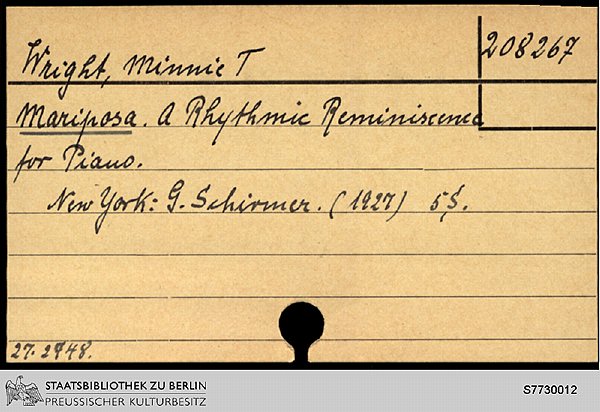 Wright, Minnie T
208267
Mariposa. A Rhythmic Reminiscence
for Piano.
New York: G. Schirmer. (1927) 5 S.
27. 2948.
STAATSBIBLIOTHEK ZU BERLIN
PREUSSISCHER KULTURBESITZ
S7730012